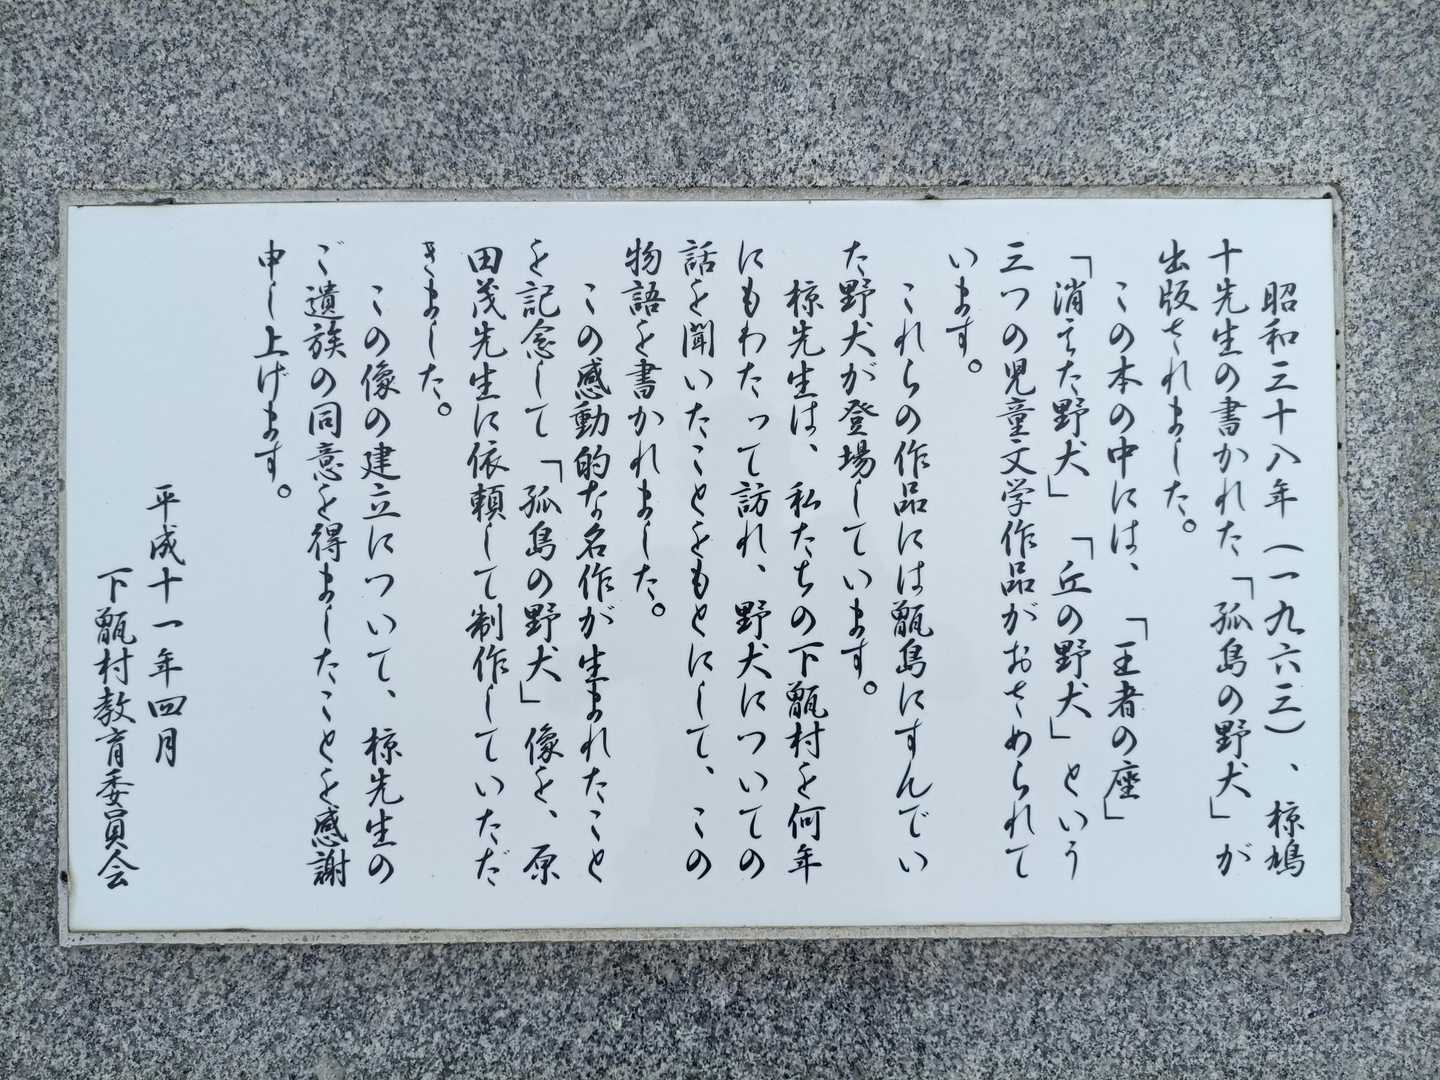 昭和三十八年（一九六三）、椋鳩
十先生の書かれた「孤島の野犬」が
出版されました。
この本の中には、「王者の座」
「消えた野犬」「丘の野犬」という
三つの児童文学作品がおさめられて
います。
これらの作品には甑島にすんでい
た野犬が登場しています。
椋先生は、私たちの下甑村を何年
にもわたって訪れ、野犬についての
話を聞いたことをもとにして、この
物語を書かれました。
この感動的な名作が生まれたこと
を記念して「孤島の野犬」像を、原
田茂先生に依頼して制作していただ
きました。
この像の建立について、椋先生の
ご遺族の同意を得ましたことを感謝
申し上げます。
平成十一年四月
下甑村教育委員会